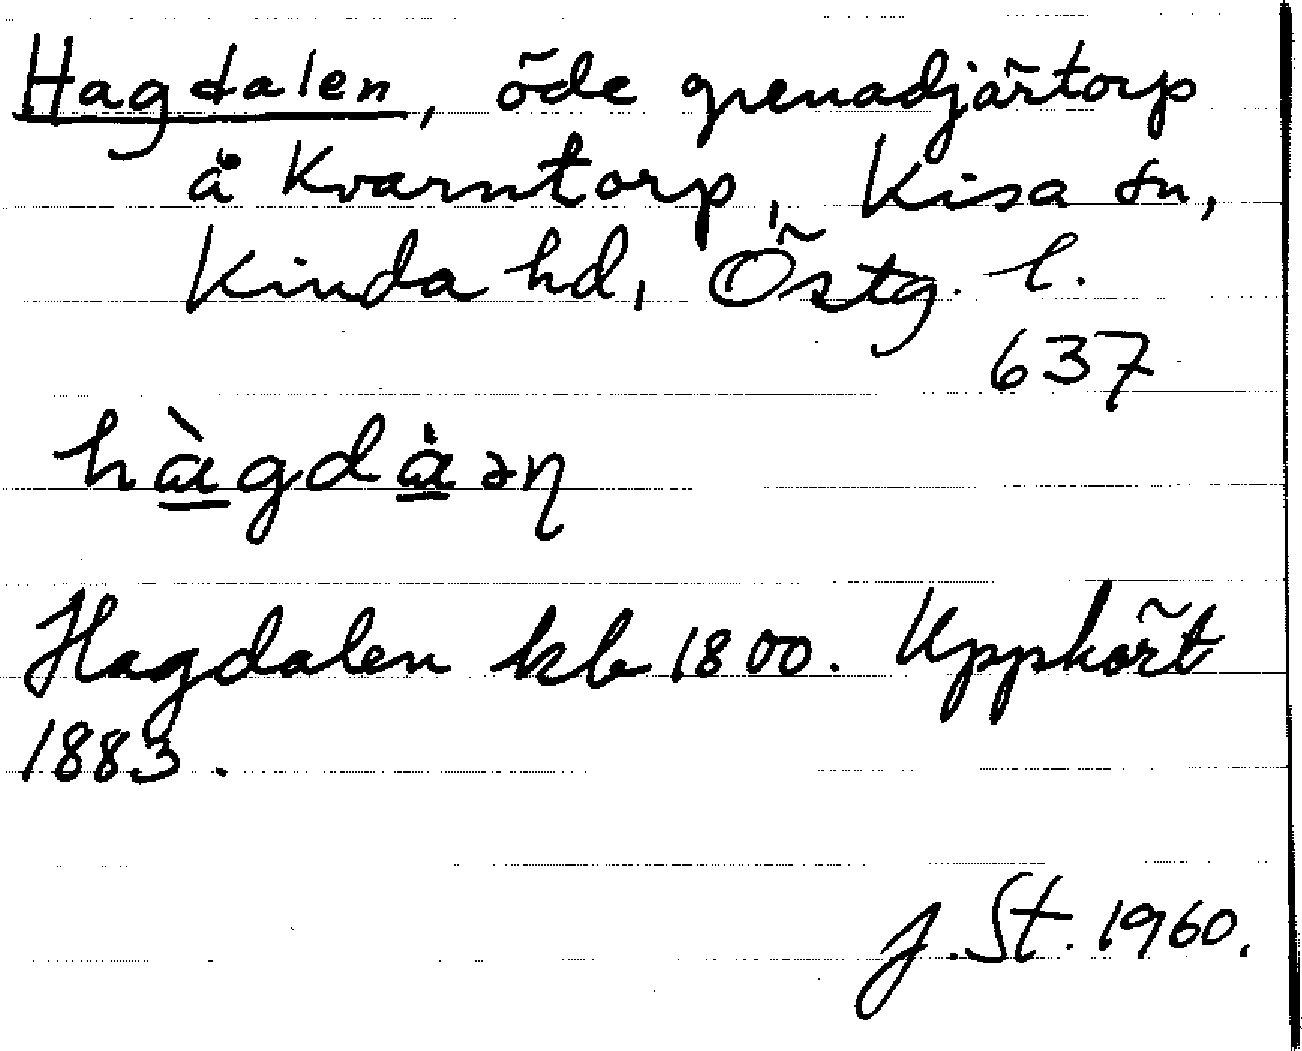 Hagdalen, öde grenadjärtorp
å Kvarntorp, Kisa sn,
Kinda hd, Östg. l.
637
hàgdàəŋ
Hagdalen kb 1800. Uppkört
1883.
J. St. 1960.